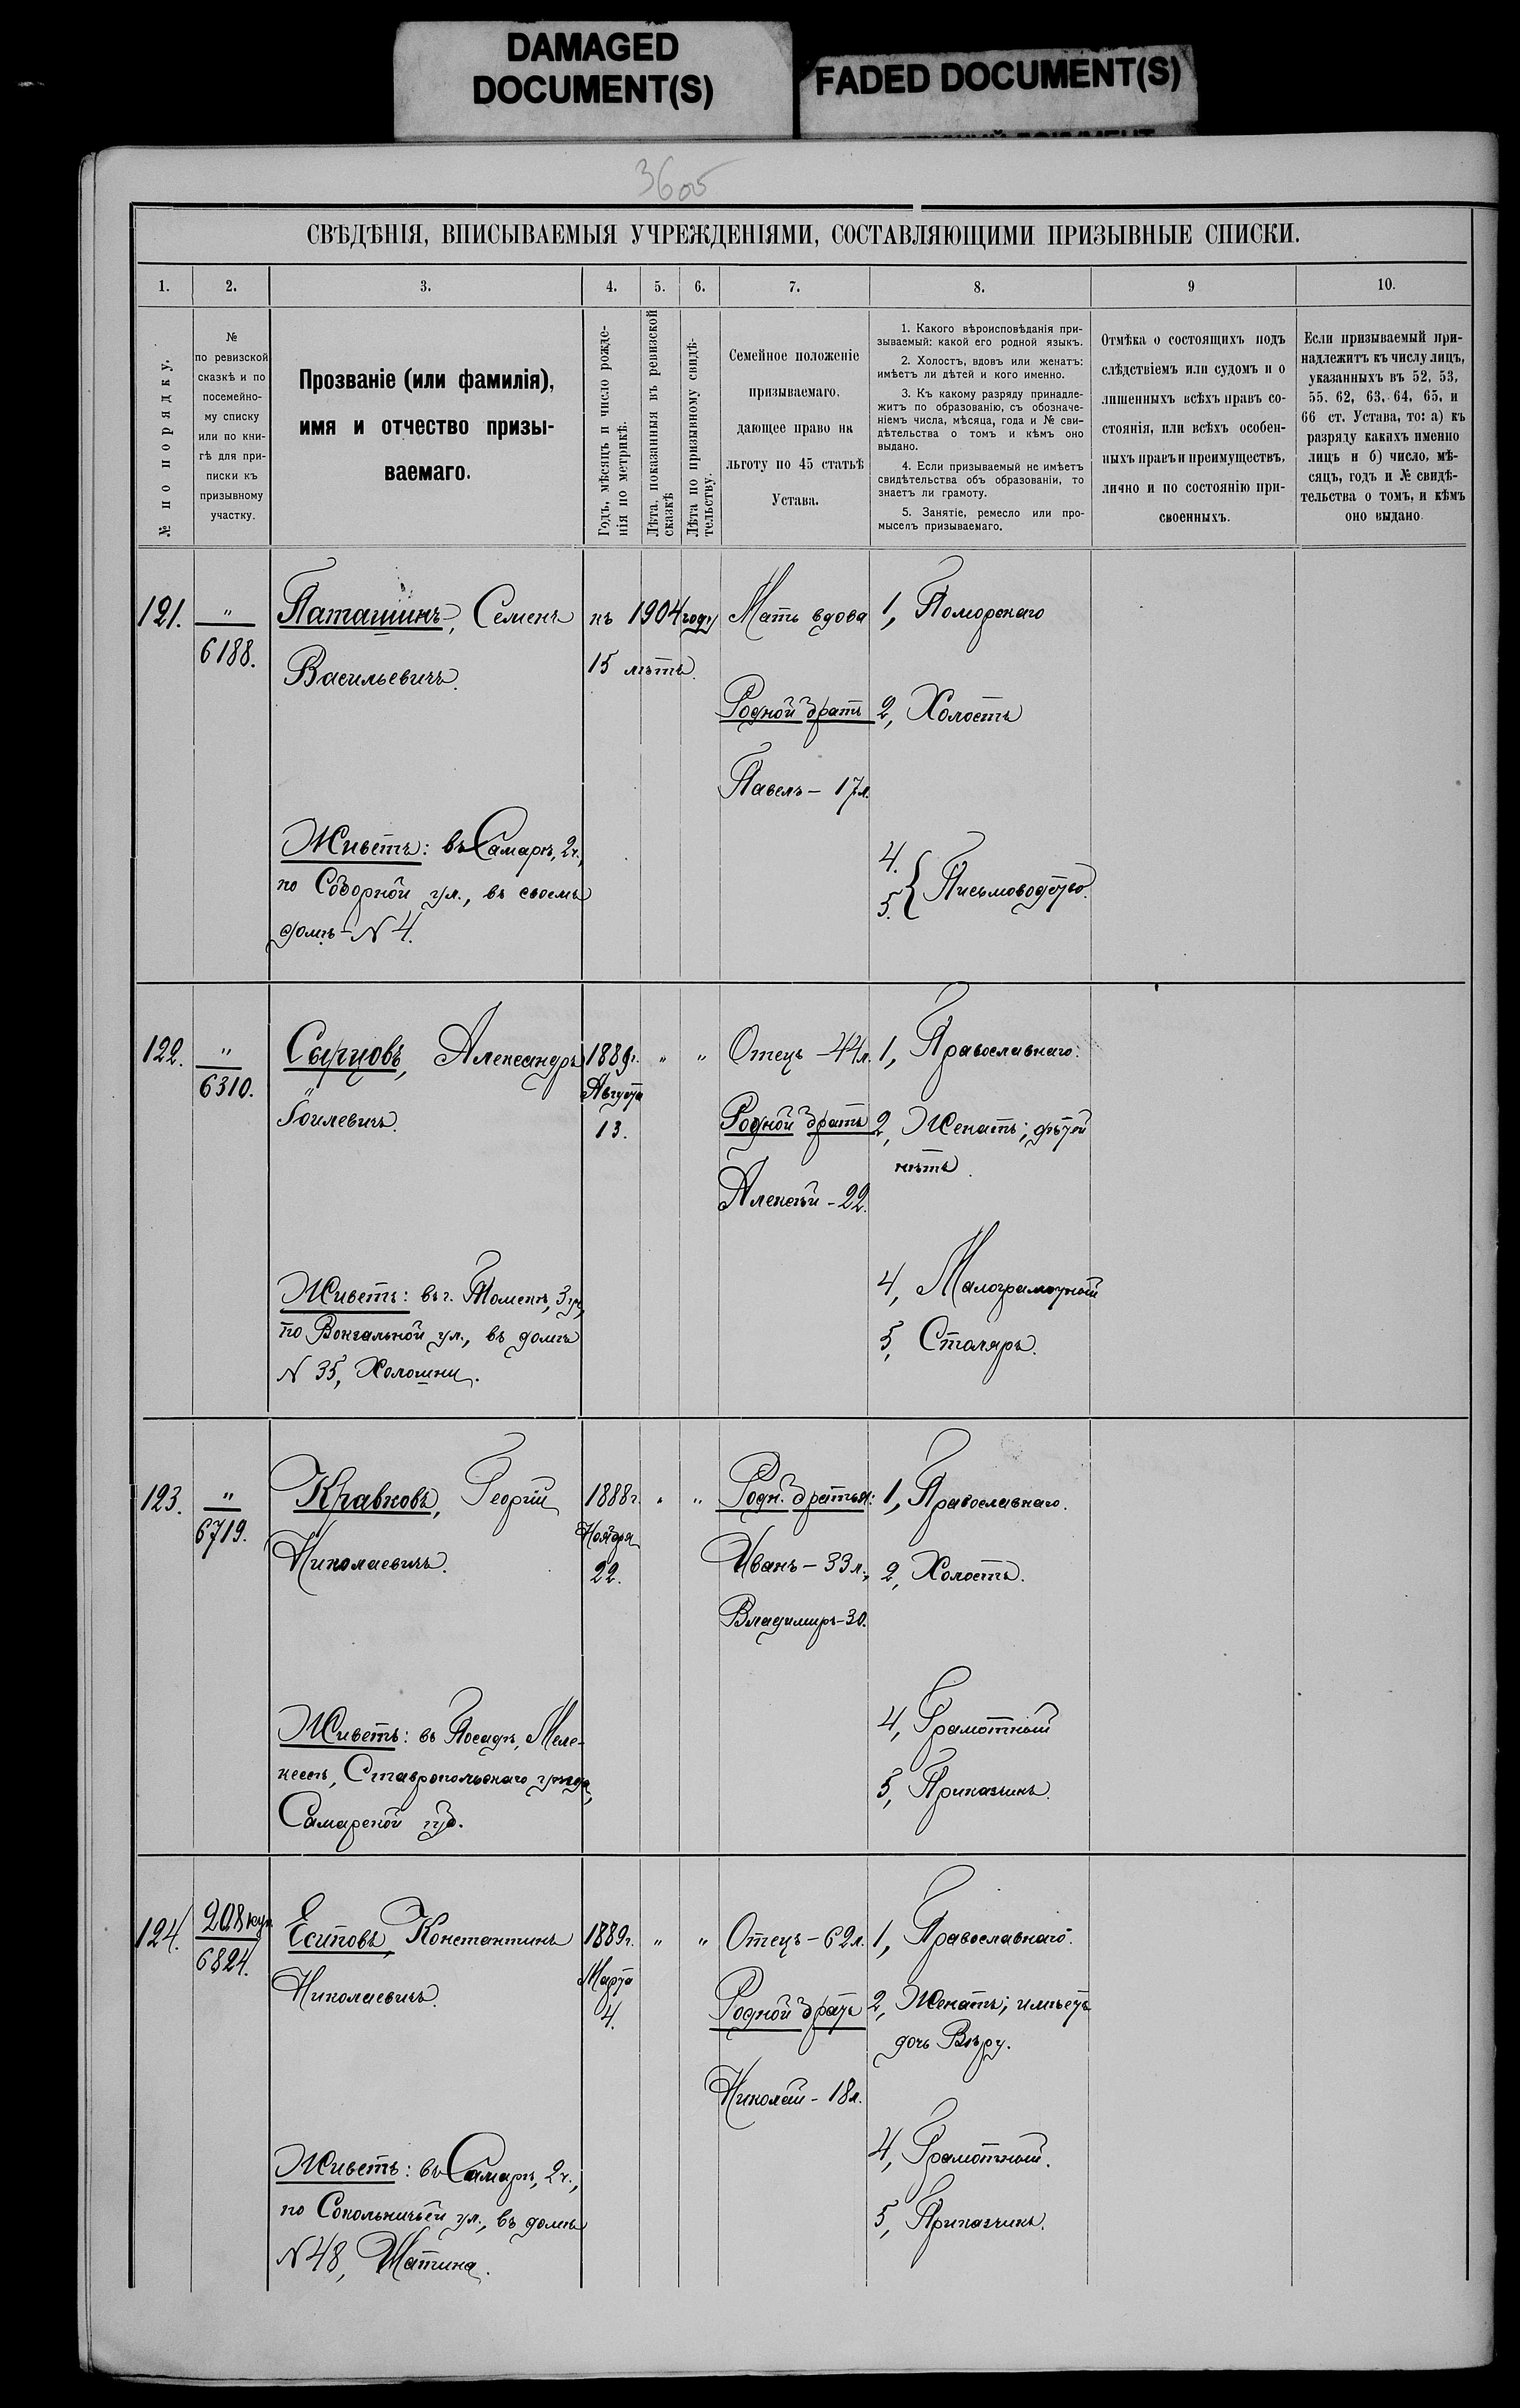 DAMAGED
DOCUMENT(S)
FADED DOCUMENT(S)
3605
СВѢДѢНІЯ, ВПИСЫВАЕМЫЯ УЧРЕЖДЕНІЯМИ, СОСТАВЛЯЮЩИМИ ПРИЗЫВНЫЕ СПИСКИ.
1.
2.
3.
4.
5.
6.
7.
8.
9
10.
№ по порядку.
№
по ревизской
сказкѣ и по
посемейно-
му списку
или по кни-
гѣ для при-
писки къ
призывному
участку.
Прозваніе (или фамилія),
имя и отчество призы-
ваемаго.
Годъ, мѣсяцъ и число рожде-
нія по метрикѣ.
Лѣта, показанныя въ ревизской
сказкѣ
Лѣта по призывному свидѣ-
тельству.
Семейное положеніе
призываемаго,
дающее право на
льготу по 45 статьѣ
Устава.
1. Какого вѣроисповѣданія при-
зываемый: какой его родной языкъ.
2. Холостъ, вдовъ или женатъ:
имѣетъ ли дѣтей и кого именно.
3. Къ какому разряду принадле-
житъ по образованію, съ обозначе-
ніемъ числа, мѣсяца, года и № сви-
дѣтельства о томъ и кѣмъ оно
выдано.
4. Если призываемый не имѣетъ
свидѣтельства объ образованіи, то
знаетъ ли грамоту.
5. Занятіе, ремесло или про-
мыселъ призываемаго.
Отмѣка о состоящихъ подъ
слѣдствіемъ или судомъ и о
лишенныхъ всѣхъ правъ со-
стоянія, или всѣхъ особен-
ныхъ правъ и преимуществъ,
лично и по состоянію при-
своенныхъ.
Если призываемый при-
надлежитъ къ числу лицъ,
указанныхъ въ 52, 53,
55, 62, 63, 64, 65, и
66 ст. Устава, то: а) къ
разряду какихъ именно
лицъ и б) число, мѣ-
сяцъ, годъ и № свидѣ-
тельства о томъ, и кѣмъ
оно выдано.
121.
"
6188.
Паташинъ, Семенъ
Васильевичъ.
Живетъ: въ Самарѣ, 2 ч.,
по Соборной ул., въ своемъ
домѣ - N 4.
къ 1904 году
15 лѣтъ.
Мать вдова
Родной братъ
Павелъ - 17 л.
1, Поморскаго
2, Холостъ
4.
5. { Письмоводство.
122.
"
6310.
Сырцовъ, Александръ
Іоилевичъ.
Живетъ: въ г. Тюмени, 3 уч.,
по Вокзальной ул., въ домѣ
N 35,
1889 г.
Августа
13.
"
"
Отецъ - 44 л.
Родной братъ
Алексѣй - 22.
1, Православнаго.
2, Женатъ; дѣтей
нѣтъ.
4, Малограмотный
5, Столяръ.
123.
"
6719.
Кравковъ, Георгій
Николаевичъ.
Живетъ: въ Посадѣ, Меле-
кессѣ, Ставропольскаго уѣзда,
Самарской губ.
1888 г.
Ноября
22.
"
"
Родн. братья:
Иванъ - 33 л.,
Владимиръ - 30.
1, Православнаго.
2, Холостъ.
4, Грамотный
5, Приказчикъ.
124.
208 куп.
6824.
Есиповъ, Константинъ
Николаевичъ.
Живетъ: въ Самарѣ, 2 ч.,
по Сокольничьей ул., въ домѣ
N 48,
1889 г.
Марта
4.
"
"
Отецъ - 62 л.
Родной братъ
Николай - 18 л.
1, Православнаго.
2, Женатъ; имѣетъ
дочь Вѣру.
4, Грамотный.
5, Приказчикъ.